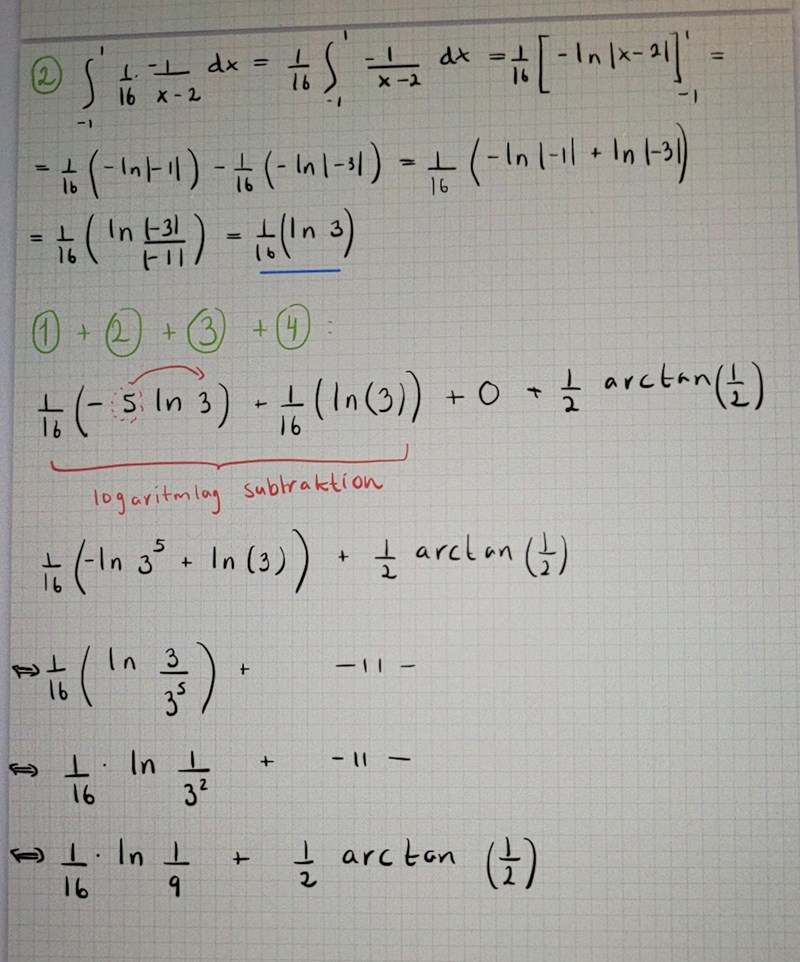 ② ∫₋₁¹ 1/16 · -1/(x-2) dx = 1/16 ∫₋₁¹ -1/(x-2) dx = 1/16 [-ln|x-2|]₋₁¹ =
= 1/16 (-ln|-1|) - 1/16 (-ln|-3|) = 1/16 (-ln|-1| + ln|-3|)
= 1/16 (ln |-3|/|-1|) = 1/16 (ln 3)
① + ② + ③ + ④ :
1/16 (- 5 ln 3) + 1/16 (ln(3)) + 0 + 1/2 arctan(1/2)
logaritmlag subtraktion
1/16 (-ln 3⁵ + ln(3)) + 1/2 arctan(1/2)
⇔ 1/16 (ln 3/3⁵) + -11-
⇔ 1/16 · ln 1/3² + -11-
⇔ 1/16 · ln 1/9 + 1/2 arctan (1/2)